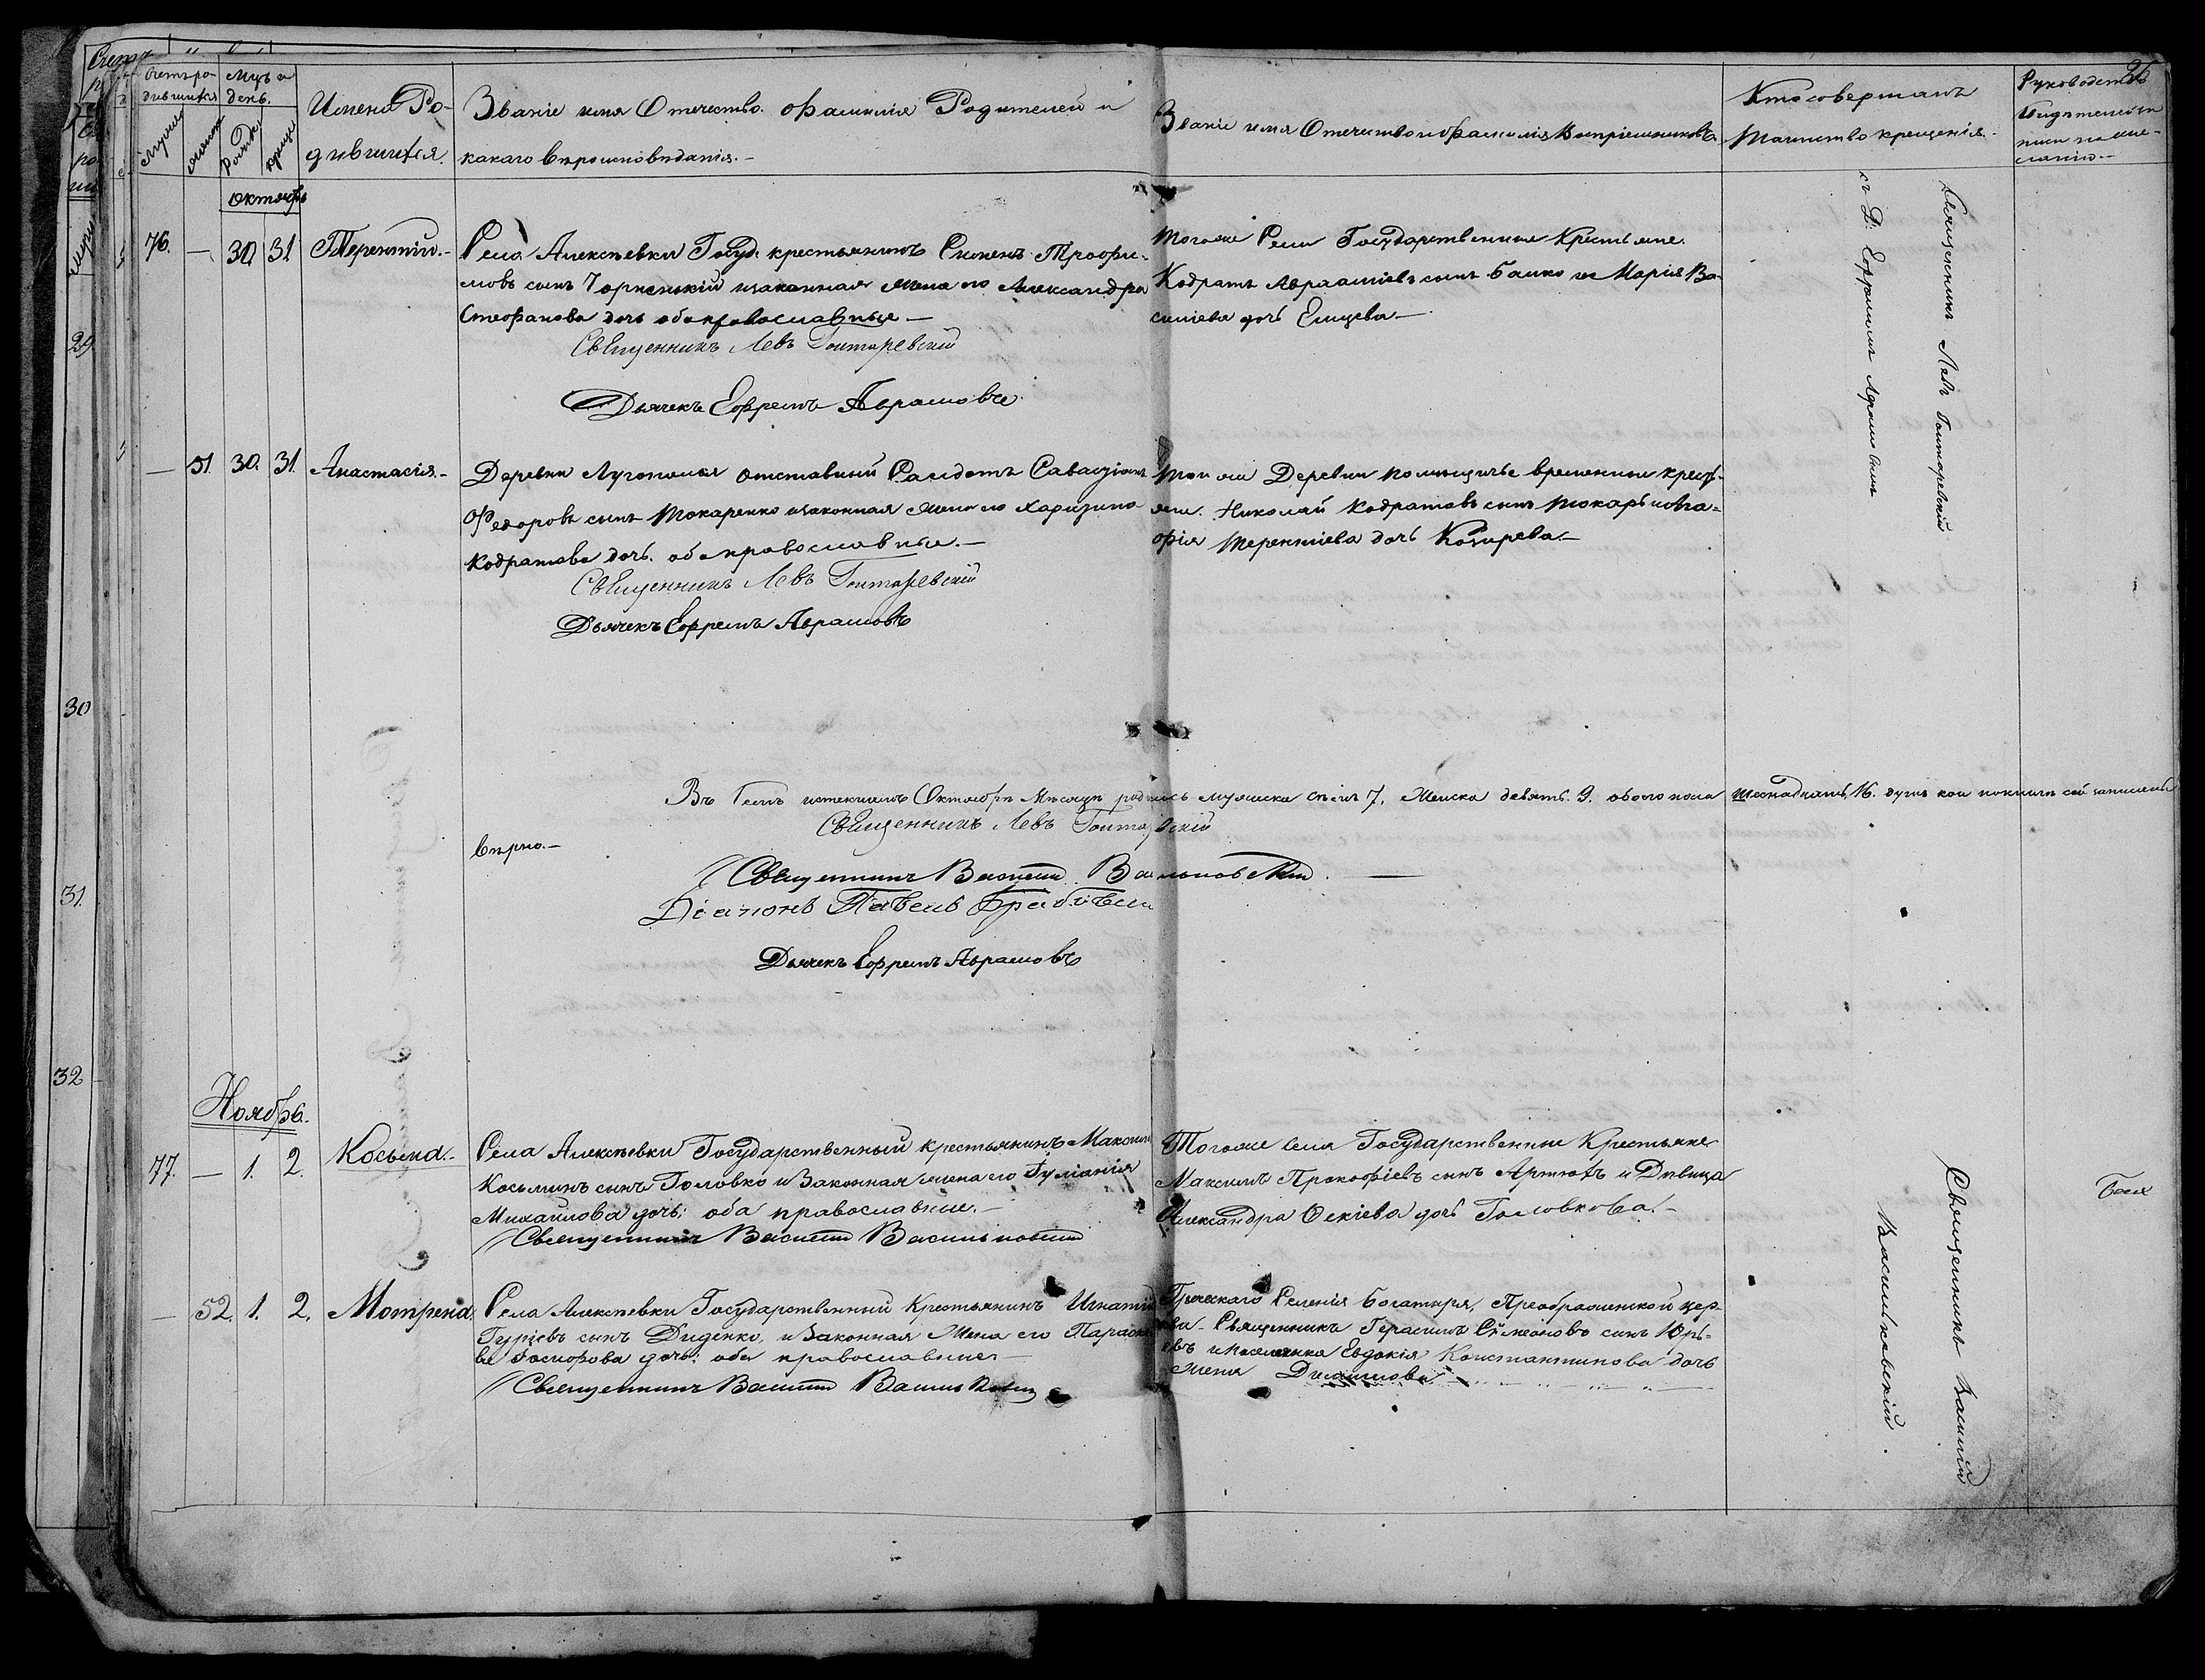 Счетъ ро-
дившихся
Мѣсъ и
день.
Имена Ро-
дившихся.
Званіе имя Отечество. фамилія Родителей и
какаго вѣроисповѣданія.-
Званіе имя Отечество и фамилія Воспріемниковъ.
Кто совершалъ
Таинство крещенія.
Руководство
октябрь
76. — 30 31 Терентій.-
Села Алексѣевки Госуд. крестьянинъ Сименъ Трофи-
мовъ сынъ Чорненькій изаконная жена его Александра
Стефанова дочь оба православные —
Священникъ Левъ Гонтаревскій
Дьячекъ Ефремъ Аврамовъ
Тогоже Села Государственные Крестьяне.
Кодратъ Аврамовъ сынъ Башко и Марія Ва-
силіева дочь Елицева —
Священникъ Левъ Гонтаревскій
съ Д. Ефремомъ Аврамовымъ
— 51. 30. 31. Анастасія.-
Деревни отставный Салдатъ
Федоровъ сынъ Токаренко изаконная жена его Харитина
Кодратова дочь. оба православные. —
Священникъ Левъ Гонтаревскій
Дьячекъ Ефремъ Аврамовъ
Той же Деревни помѣщичье временные кресть-
яне. Николай Кодратовъ сынъ Токарь
Терентіева дочь Козирева. —
Въ семъ истекшемъ Октябрѣ Мѣсяцѣ родилось мужеска семъ 7. Женска девять. 9. обоего пола шеснадцать, 16. душъ кои
Священникъ Левъ Гонтаревскій
вѣрно. —
Священникъ Василій Васильковскій. —
Діаконъ Павелъ
Дьячекъ Ефремъ Аврамовъ
29
30
31.
32
Ноябрь.
77. — 1. 2. Косьма.-
Села Алексѣевки Государственный крестьянинъ Максимъ
Косьминъ сынъ Головко и Законная жена его Іуліанія
Михайлова дочь; оба православные. —
Священникъ Василій Васильковскій
Тогоже села Государственные Крестьяне
Максимъ Прокофіевъ сынъ Артюхъ и Дѣвица
Александра дочь Головкова. -
Священникъ Василій
Васильковскій.
— 52. 1. 2. Мотрена.
Села Алексѣевки Государственный Крестьянинъ Игнатій
Гуріевъ сынъ Диденко, и Законная Жена его Параске-
ва дочь; оба православные —
Священникъ Василій Васильковскій
Греческаго Селенія Богатыря, Преображенской цер-
кви. Священникъ Герасимъ Симеоновъ сынъ Юрь-
евъ и Евдокія Константинова дочь
жена